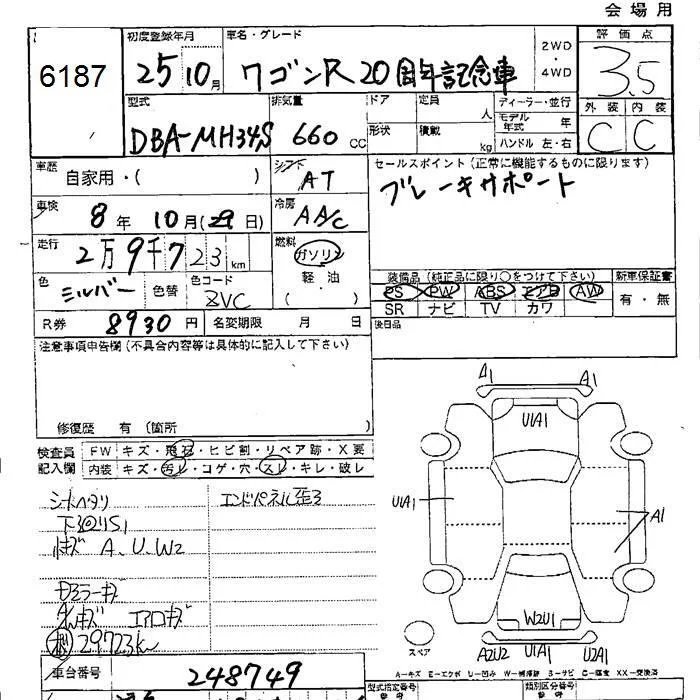 会場用
6187
初度登録年月
25 10月
車名・グレード
ワゴンR 20周年記念車
2WD
・
4WD
評価点
3.5
外装 内装
C C
型式
DBA-MH34S
排気量
660 CC
ドア 定員 人
形状 積載 kg
ディーラー・並行
モデル年式 年
ハンドル 左・右
車歴
自家用・( )
シフト
AT
セールスポイント(正常に機能するものに限ります)
ブレーキサポート
車検
8年 10月(29日)
冷房
AA/C
走行
2万9千723km
燃料
ガソリン
軽・油
( ・ )
色
シルバー
色替
色コード
ZVC
装備品(純正品に限り○をつけて下さい)
PS PW ABS エアB AW
SR ナビ TV カワ
新車保証書
有・無
R券 8930円
名変期限 月 日
後日品
注意事項申告欄(不具合内容等は具体的に記入して下さい)
修復歴 有(箇所 )
検査員記入欄
FW キズ・飛石・ヒビ割・リペア跡・X要
内装 キズ・汚レ・コゲ・穴・スレ・キレ・破レ
シートヘタリ
エンドパネル歪3
下回りS1
小キズ A、U、W2
ドアミラーキズ
AWキズ エアロキズ
29723km
車台番号
248749
A1 A1
U1A1
U1A1
A1
W2U1
スペア
A2U2 U1A1 U2A1
A-キズ E-エクボ U-凹み W-補修跡 S-サビ C-腐食 XX-交換済
型式指定番号
類別区分番号